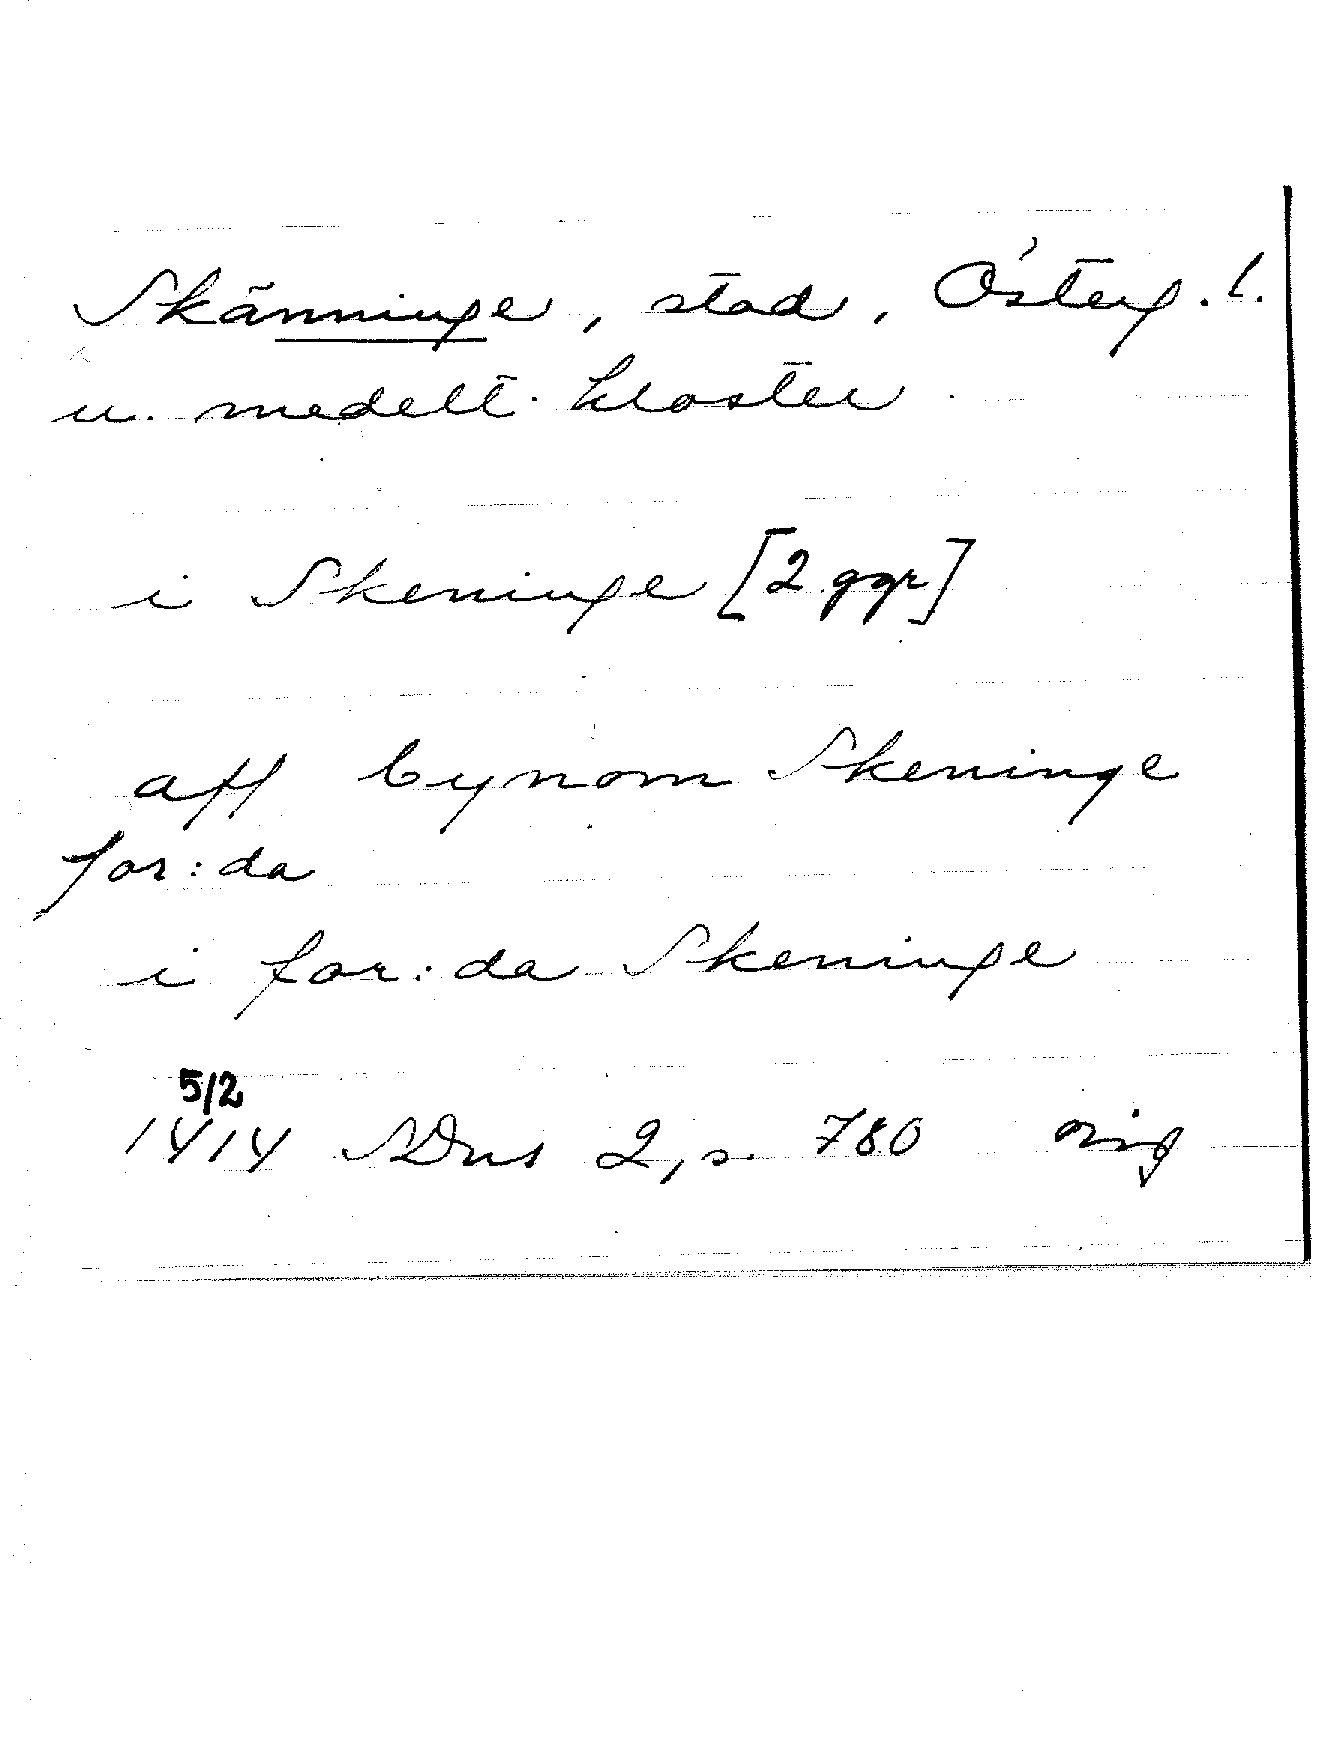 Skänninge, stad, Österg. l.
u. medelt. kloster
i Skeninge [2 ggr]
aff bynom Skeninge
for:da
i for:da Skeninge
5/2
1414 SDns 2, s. 780 orig